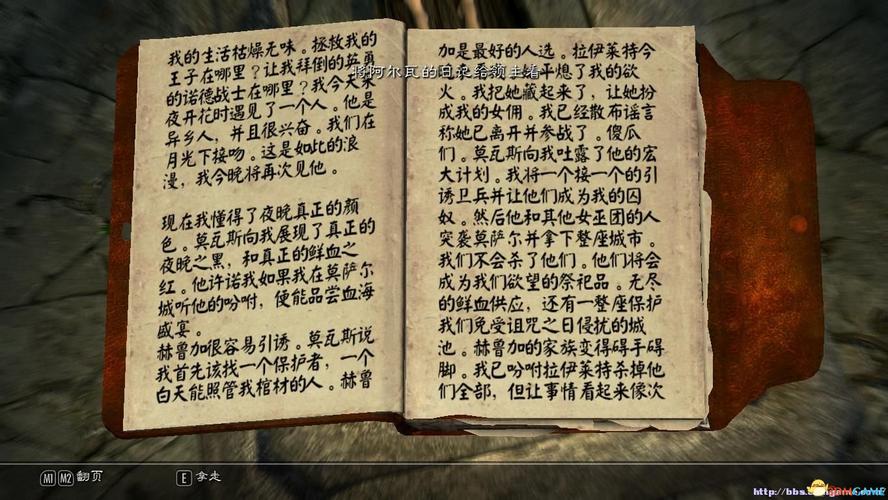 我的生活枯燥无味。拯救我的
王子在哪里？让我拜倒的英勇
的诺德战士在哪里？我今天
夜开花时遇见了一个人。他是
异乡人，并且很兴奋。我们在
月光下接吻。这是如此的浪
漫，我今晚将再次见他。
现在我懂得了夜晚真正的颜
色。莫瓦斯向我展现了真正的
夜晚之黑，和真正的鲜血之
红。他许诺我如果我在莫萨尔
城听他的吩咐，便能品尝血海
盛宴。
赫鲁加很容易引诱。莫瓦斯说
我首先该找一个保护者，一个
白天能照管我棺材的人。赫鲁
加是最好的人选。拉伊莱特今
将阿尔瓦的日录给领主看
熄了我的欲
火。我把她藏起来了，让她扮
成我的女佣。我已经散布谣言
称她已离开并参战了。傻瓜
们。莫瓦斯向我吐露了他的宏
大计划。我将一个接一个的引
诱卫兵并让他们成为我的囚
奴。然后他和其他女巫团的人
突袭莫萨尔并拿下整座城市。
我们不会杀了他们。他们将会
成为我们欲望的祭祀品。无尽
的鲜血供应，还有一整座保护
我们免受诅咒之日侵扰的城
池。赫鲁加的家族变得碍手碍
脚。我已吩咐拉伊莱特杀掉他
们全部，但让事情看起来像次
M1 M2 翻页
E 拿走